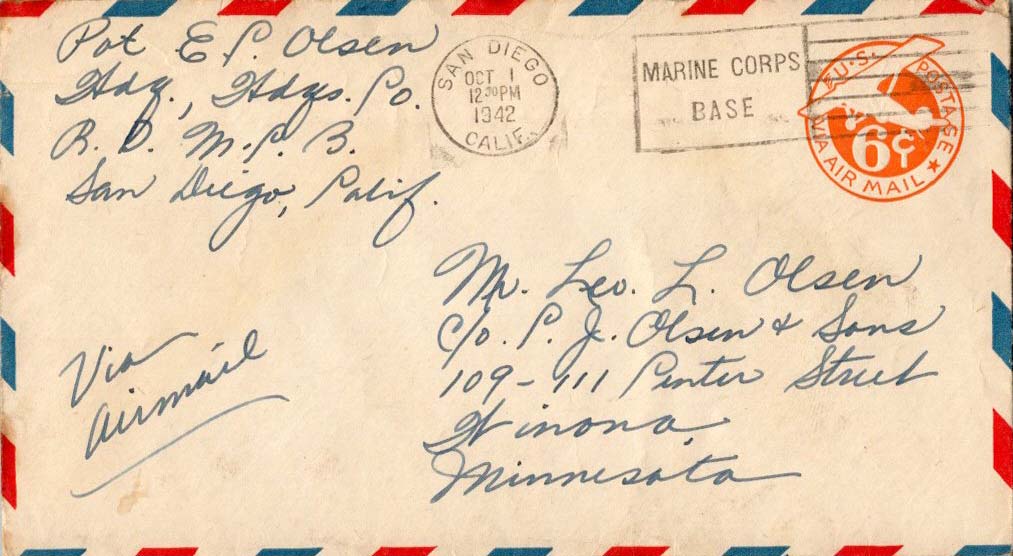 Pvt E C. Olsen
Hdq., Hdqs. Co.
R. D. M. C. B.
San Diego, Calif.
SAN DIEGO
OCT 1
12 30 PM
1942
CALIF.
MARINE CORPS
BASE
U.S. POSTAGE
6¢
VIA AIR MAIL
Mr. Leo. L. Olsen
c/o. C. J. Olsen & Sons
109-111 Center Street
Winona,
Minnesota
Via
airmail